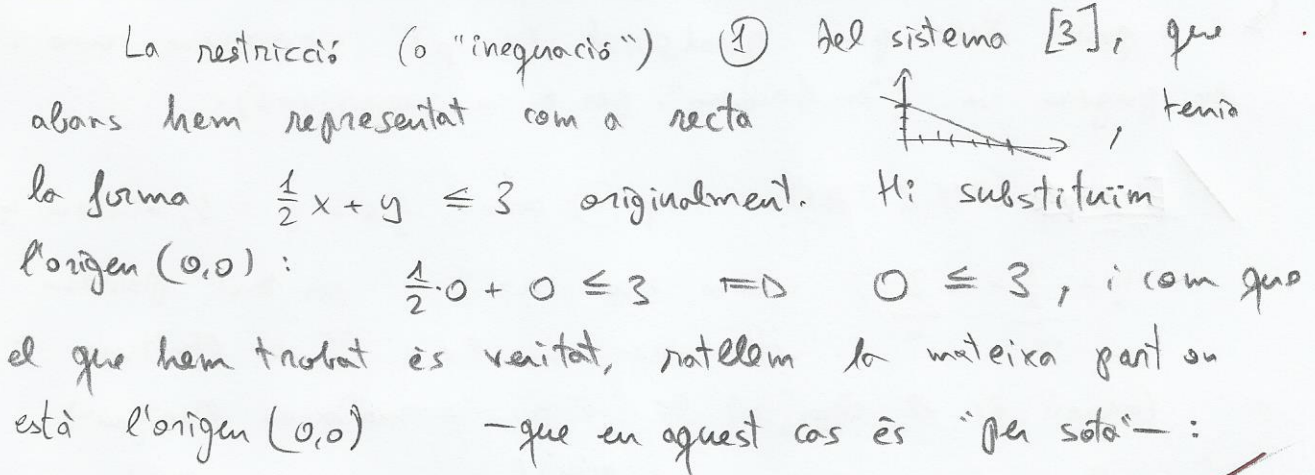 La restricció (o "inequació") ① del sistema [3], que
abans hem representat com a recta , tenia
la forma 1/2 x + y ≤ 3 originalment. Hi substituïm
l'origen (0,0) : 1/2·0 + 0 ≤ 3 ⇒ 0 ≤ 3, i com que
el que hem trobat és veritat, ratllem la mateixa part on
està l'origen (0,0) —que en aquest cas és "per sota"— :